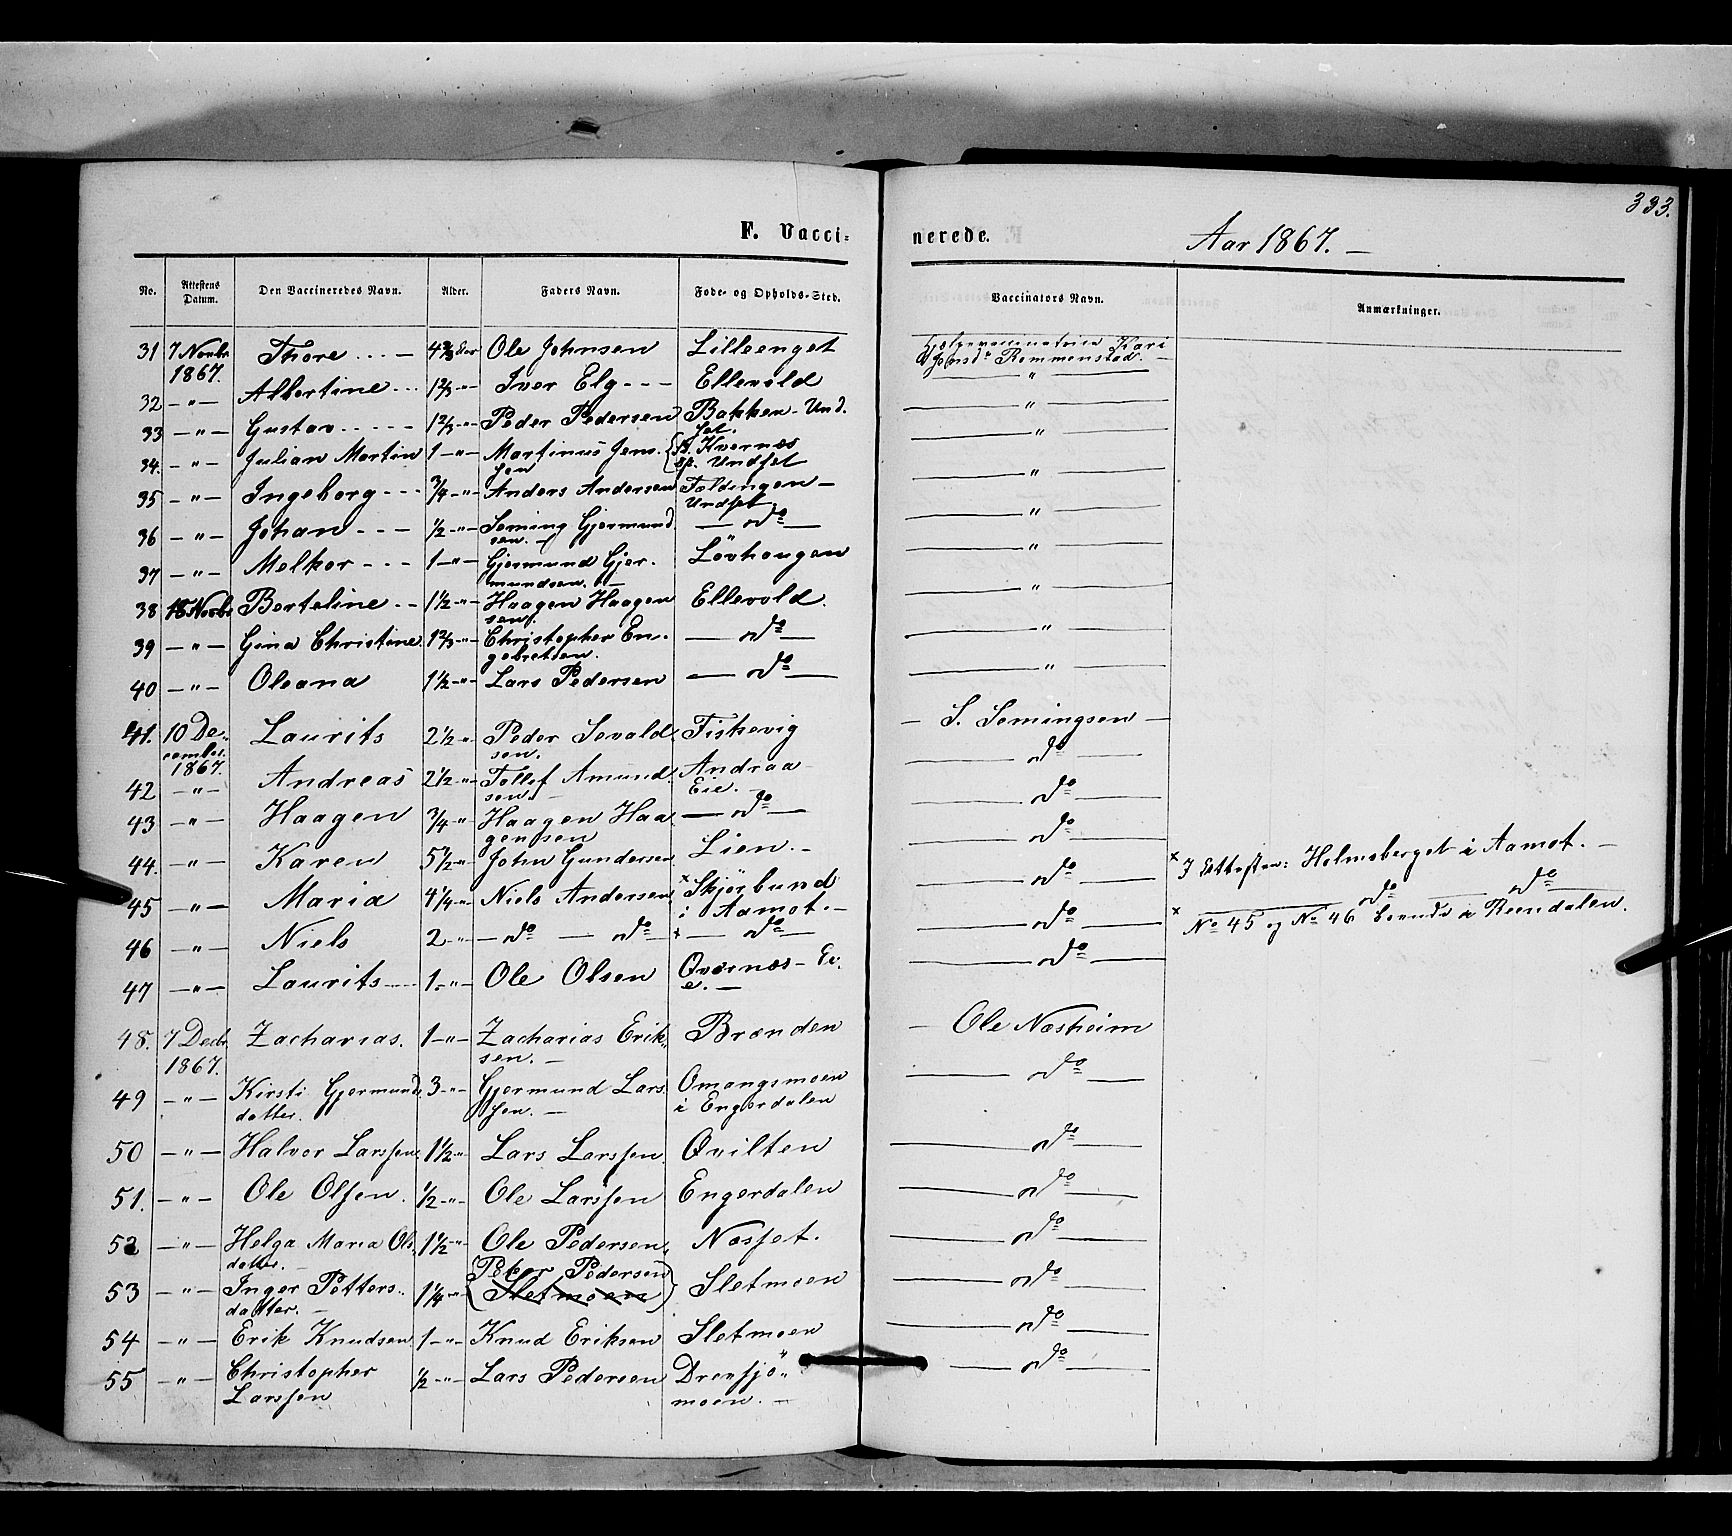 333.
F. Vacci- nerede. Aar 1867. —
No. Attestens Datum. Den Vaccineredes Navn. Alder. Faders Navn. Føde- og Opholds-Sted. Vaccinators Navn. Anmærkninger.
31 7 Novbr 1867. Thore . . . — 4⅔ Aar Ole Johnsen Lilleenget Hjælpevaccinatrice Kari Jensdr Rommenstad. —
32 — " — Albertine . . . 1⅔ -"- Iver Elg - - - Ellevold — " —
33 — " — Gustav . . . . . 1⅔ -"- Peder Pedersen Bakken - Undset. — " —
34. — " — Julian Martin 1 -"- Martinus Jensen { f. Kvernæs op. Undset — " —
35 — " — Ingeborg - - - ¾ -"- Anders Andersen Foldingen — Undset — " —
36 — " — Johan - - - ½ -"- Seming Gjermundsen. — — do — — " —
37 — " — Melkor - - - 1 -"- Gjermund Gjermundsen. — Lövhaugen — " —
38 18 Novbr Berteline - - 1½ -"- Haagen Haagensen. Ellevold. — " —
39 — " — Gina Christine. 1⅔ -"- Christopher Engebretsen. — do — — " —
40 — " — Oleana 1½ -"- Lars Pedersen — do — — " —
41. 10 December. 1867. Laurits 2½ -"- Peder Sevaldsen. Fiskevig — S. Semingsen —
42 — " — Andreas 2½ -"- Tollef Amundsen. — Andraa Eie. — — do —
43 — " — Haagen ¾ -"- Haagen Haagensen — do — — do —
44. — " — Karen 5½ -"- John Gundersen Lien. - — do —
45 — " — Maria 4¼ -"- Niels Andersen x Skjörbund i Aamot. — — do — x I Attesten: Holmsberget i Aamot. —
46 — " — Niels 2 -"- — do — do — x — do — — do — x — do — do —
No 45 og No 46 boende i Reendalen.
47 — " — Laurits 1. -"- Ole Olsen Qvernæs - Eie. — — do —
48. 7 Decbr. 1867. Zacharias. 1 -"- Zacharias Eriksen. — Brænden — Ole Næsheim
49 — " — Kirsti Gjermundsdatter. 3 -"- Gjermund Larssen. — Omangsmoen i Engerdalen — do —
50 — " — Halvor Larssen. 1½ -"- Lars Larssen. Qvilten — do —
51. — " — Ole Olsen. ½ -"- Ole Larssen Engerdalen — do —
52 — " — Helga Maria Olsdatter. — 1½ -"- Ole Pedersen. Næsset. — do —
53 — " — Inger Pettersdatter. — 1¼ -"- ( Peter Pedersen Sletmoen ) Sletmoen — do —
54 — " — Erik Knudsen 1 -"- Knud Eriksen Sletmoen — do —
55 — " — Christopher Larssen ½ -"- Lars Pedersen Drevsjömoen. — — do —